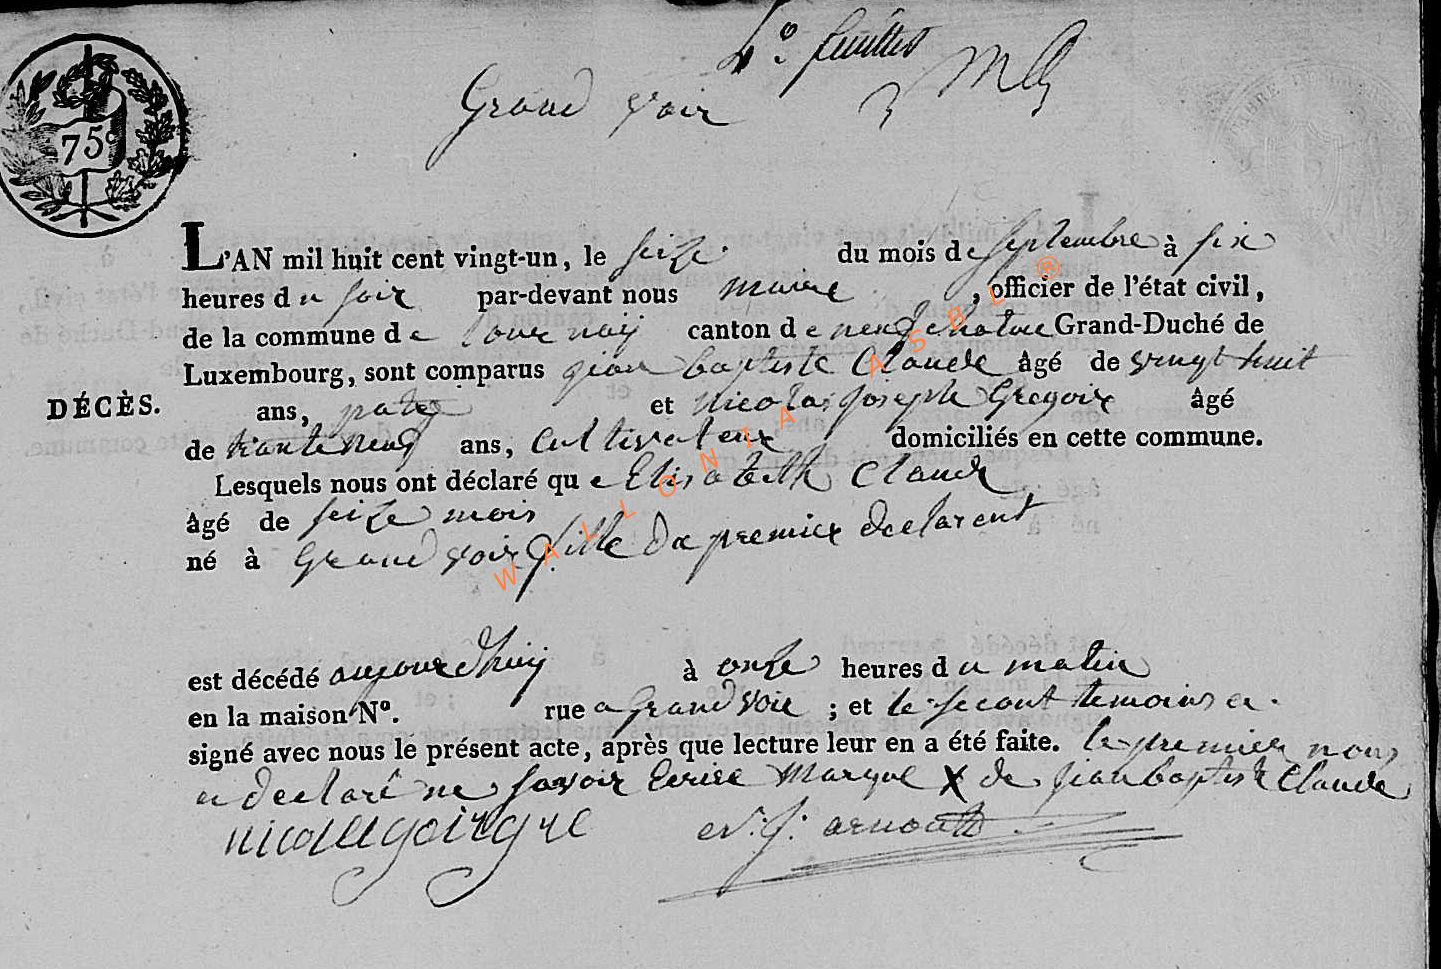 4e feuillet
Grand voir
75c
L'AN mil huit cent vingt-un, le seize du mois de septembre à six
heures du soir par-devant nous maire, officier de l'état civil,
de la commune de canton de neufchateau Grand-Duché de
Luxembourg, sont comparus jean baptiste Claude âgé de vingt huit
DÉCÈS.
ans, et nicolas joseph Gregoire âgé
de trante neuf ans, Cultivateur domiciliés en cette commune.
Lesquels nous ont déclaré que Elisabeth Claude
âgé de seize mois
né à Grand voir fille du premier declarent
est décédé aujourd'huy à onze heures du matin
en la maison No. rue a Grand voir ; et le secont temoins a
signé avec nous le présent acte, après que lecture leur en a été faite. le premier nous
a declaré ne savoir Ecrire Marque X de jean baptiste Claude
arnould
WALLONIA ASBL ®